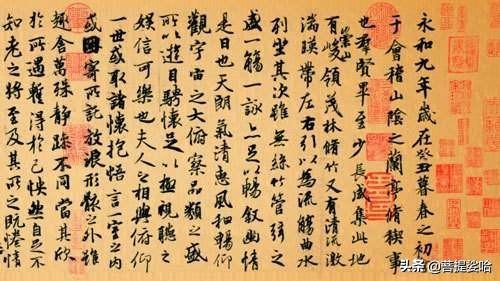 永和九年歲在癸丑暮春之初
于會稽山陰之蘭亭脩稧事
也群賢畢至少長咸集此地
有崇山峻領茂林脩竹又有清流激
湍暎帶左右引以為流觴曲水
列坐其次雖無絲竹管弦之
盛一觴一詠亦足以暢敘幽情
是日也天朗氣清惠風和暢仰
觀宇宙之大俯察品類之盛
所以遊目騁懷足以極視聽之
娛信可樂也夫人之相與俯仰
一世或取諸懷抱悟言一室之內
或因寄所託放浪形骸之外雖
趣舍萬殊靜躁不同當其欣
於所遇蹔得於己怏然自足不
知老之將至及其所之既惓情
头条 @菩提娑哈